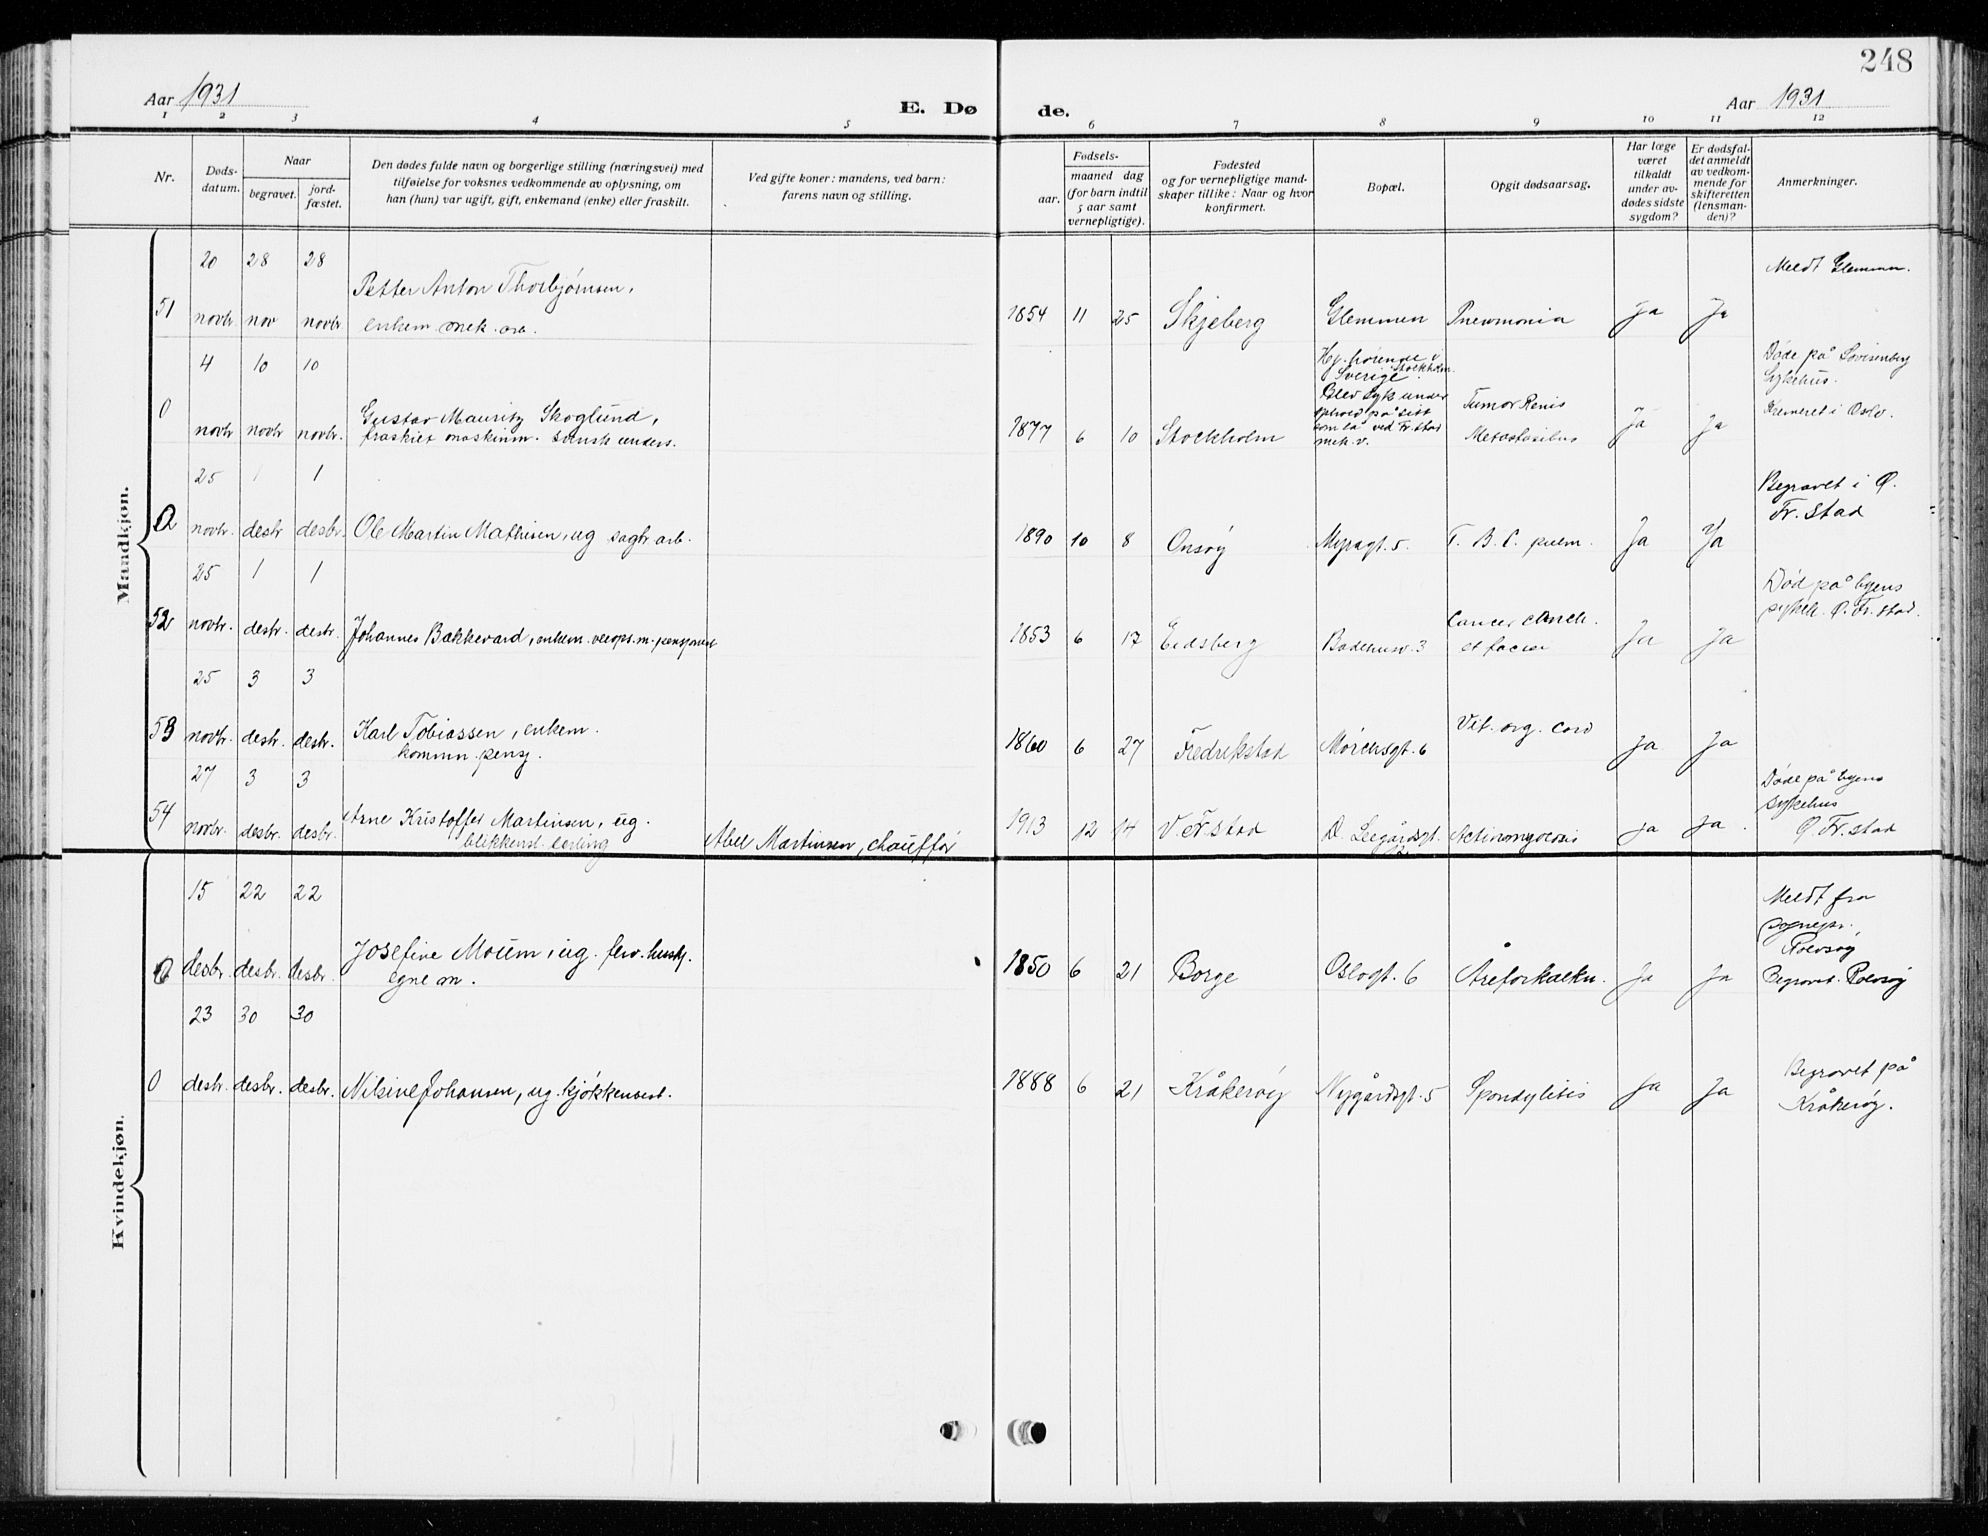 248
Aar 1931
E. Dø de.
Aar 1931
1 2 3 4 5 6 7 8 9 10 11 12
Nr.
Døds-
datum.
Naar
begravet.
jord-
fæstet.
Den dødes fulde navn og borgerlige stilling (næringsvei) med
tilføielse for voksnes vedkommende av oplysning, om
han (hun) var ugift, gift, enkemand (enke) eller fraskilt.
Ved gifte koner: mandens, ved barn:
farens navn og stilling.
Fødsels-
aar.
maaned dag
(for barn indtil
5 aar samt
vernepligtige).
Fødested
og for vernepligtige mand-
skaper tillike: Naar og hvor
konfirmert.
Bopæl.
Opgit dødsaarsag.
Har læge
været
tilkaldt
under av-
dødes sidste
sygdom?
Er dødsfal-
det anmeldt
av vedkom-
mende for
skifteretten
(lensman-
den)?
Anmerkninger.
Mandkjøn.
51
20 28 28
novbr. nov novbr
Petter Anton Thorbjørnsen,
enkem. mek. arb.
1854 11 25
Skjeberg
Glemmen
Pneumonia
Ja Ja
Meldt Glemmen.
0
4 10 10
novbr novbr novbr.
Gustav Mauritz Skoglund,
fraskiet maskinm. svensk unders.
1877 6 10
Stockholm
Hj. hörende i
Stockholm
Sverige.
Blev syk under
ophold på sitt
som lå ved Fr.stad
mek. v.
Tumor Renis
Metastasibus
Ja Ja
Døde på Lovisenberg
Sykehus.
Kremeret i Oslo.
0
25 1 1
novbr. desbr desbr.
Ole Martin Mathisen, ug sagbr arb.
1890 10 8
Onsøy
Myragt. 5.
T. B. C. pulm.
Ja Ja
Begravet i Ø.
Fr. stad
52
25 1 1
novbr. desbr. desbr.
Johannes Bakkevard, enkem.
1853 6 17
Eidsberg
Badehusv. 3
Cancer
et faciei
Ja Ja
Død på byens
sykeh. Ø. Fr. stad.
53
25 3 3
novbr. desbr. desbr.
Karl Tobiassen, enkem.
kommun. pensj.
1860 6 27
Fredrikstad
Mørchsgt. 6
Vit. org. cord
Ja Ja
54
27 3 3
novbr. desbr. desbr.
Arne Kristoffer Martinsen, ug.
blikkensl. lærling
Abel Martinsen, chauffør
1913 12 14
V. Fr. stad
D. Leegårdsgt.
Actinomycosis
Ja Ja.
Døde på byens
sykehus
Ø. Fr. stad
Kvindekjøn.
0
15 22 22
desbr. desbr. desbr.
Josefine Moum, ug. fhv. hushj.
egne m.
1850 6 21
Borge
Oslogt. 6
Åreforkalkn.
Ja Ja
Meldt fra
sognepr.
Rolvsøy
Begravet Rolvsøy
0
23 30 30
desbr. desbr. desbr.
Nilsine Johansen, ug. kjøkkenbest.
1888 6 21
Kråkerøy
Nygårdsgt. 5
Spondylitis
Ja Ja
Begravet på
Kråkerøy.